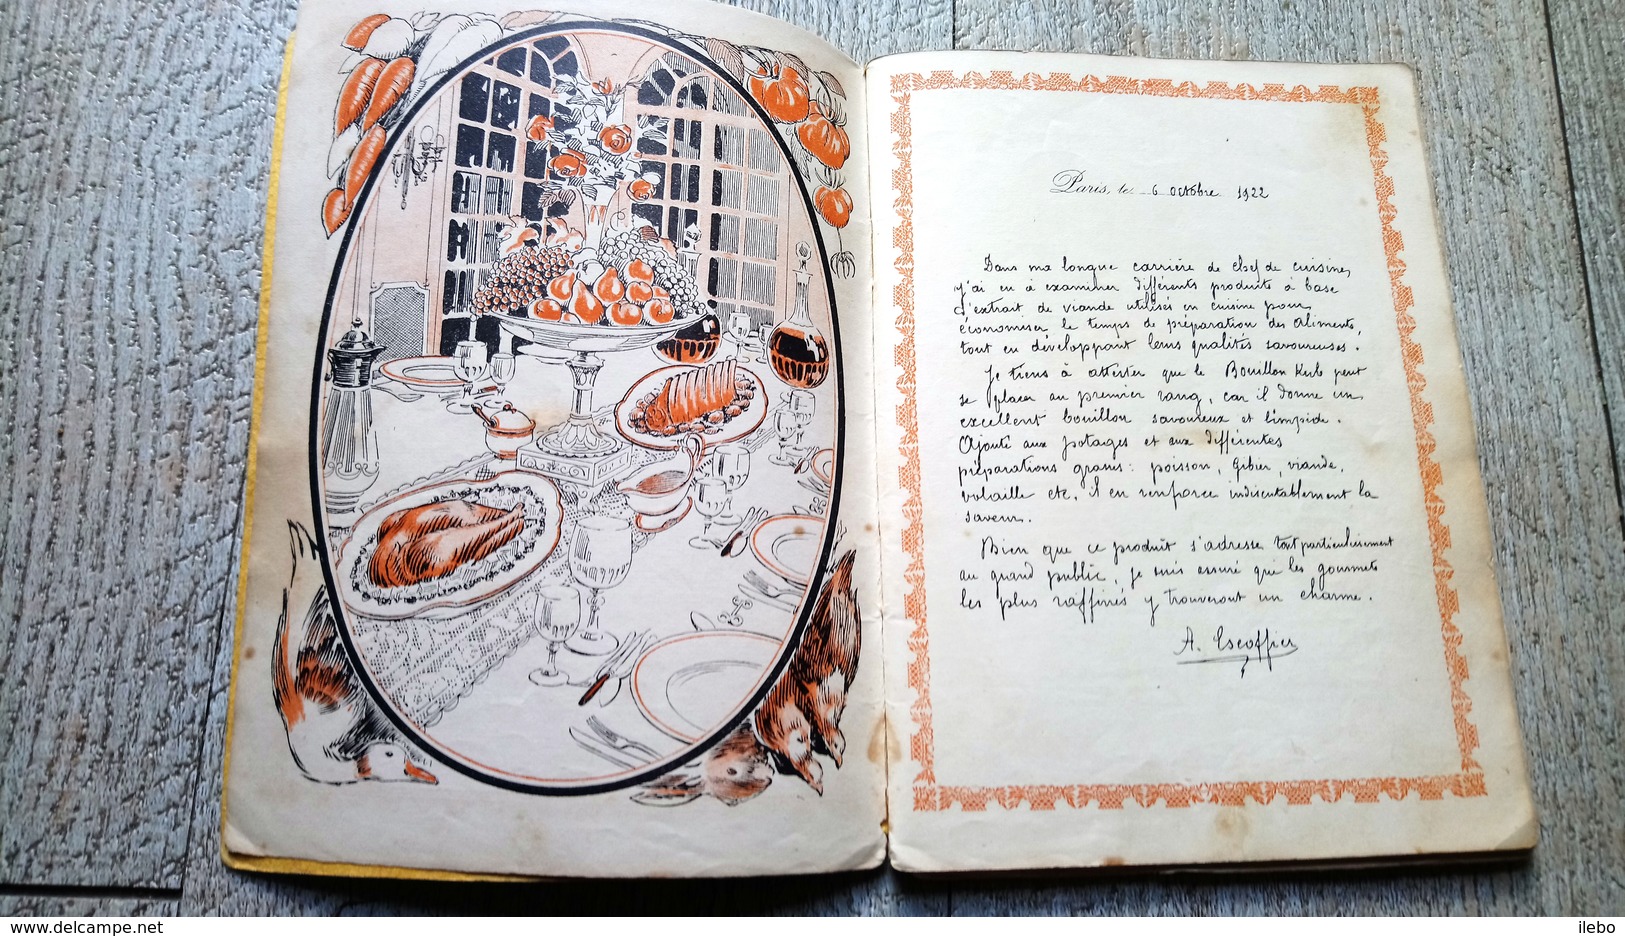 Paris, le 6 octobre 1922
Dans ma longue carrière de chef de cuisine,
j'ai eu à examiner différents produits à base
d'extrait de viande utilisés en cuisine pour
économiser le temps de préparation des aliments,
tout en développant leurs qualités savoureuses.
Je tiens à attester que le Bouillon Kub peut
se placer au premier rang, car il donne un
excellent bouillon savoureux et limpide.
Ajouté aux potages et aux différentes
préparations grasses : poisson, gibier, viande,
volaille etc, il en renforce indiscutablement la
saveur.
Bien que ce produit s'adresse tout particulièrement
au grand public, je suis assuré que les gourmets
les plus raffinés y trouveront un charme.
A. Escoffier
www.delcampe.net
ilebo